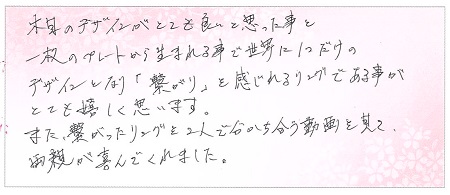 木目のデザインがとても良いと思った事と
一枚のプレートから生まれる事で世界に1つだけの
デザインとなり「繋がり」を感じれるリングである事が
とても嬉しく思います。
また、繋がったリングを2人で分かち合う動画を見て、
両親が喜んでくれました。